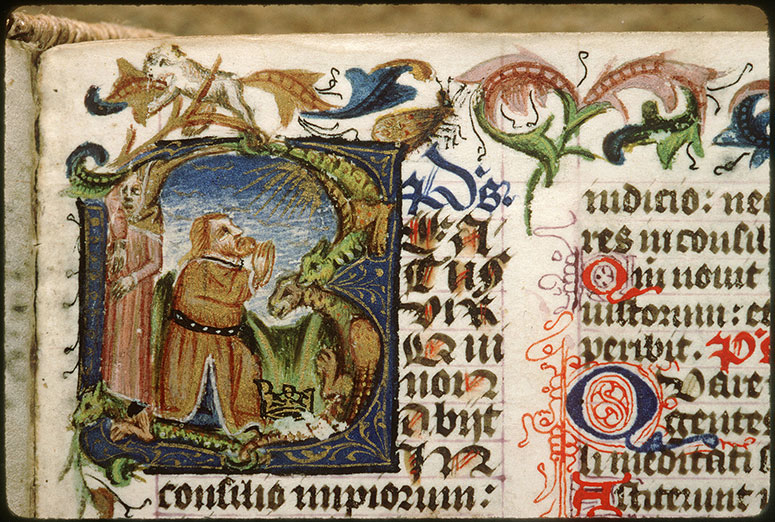 B
EA
TUS
VIR
QUI
NON
ABIJT
IN
consilio impiorum:
iudicio: nec
res in consil
Qm nouit
iustorum: et
peribit. Ps
Quare
gentes
li meditati s
Astiterunt